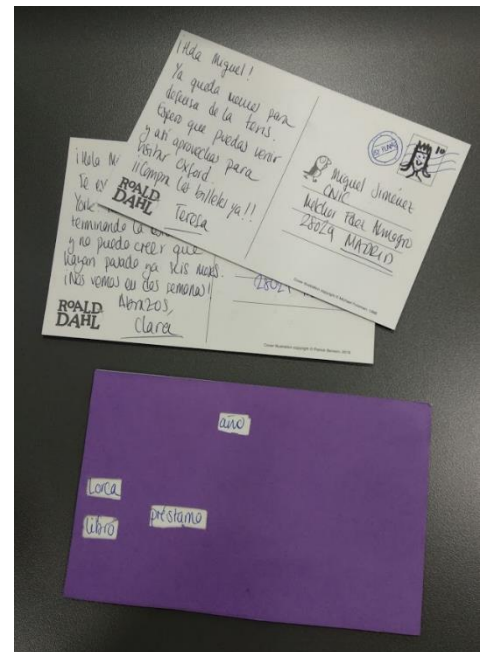 ¡Hola Miguel!
Ya queda menos para
defensa de la tesis.
Espero que puedas venir
y así aprovechas para
visitar Oxford.
¡¡Compra los billetes ya!!
Teresa
ROALD
DAHL
10
Miguel Jiménez
CNIC
Melchor Fdez Almagro
28029 MADRID
¡Hola Mi
Te es
York
terminando la
y no puedo creer que
hayan pasado ya seis meses.
¡Nos vemos en dos semanas!
Abrazos,
Clara
ROALD
DAHL
año
Lorca
libro
préstamo